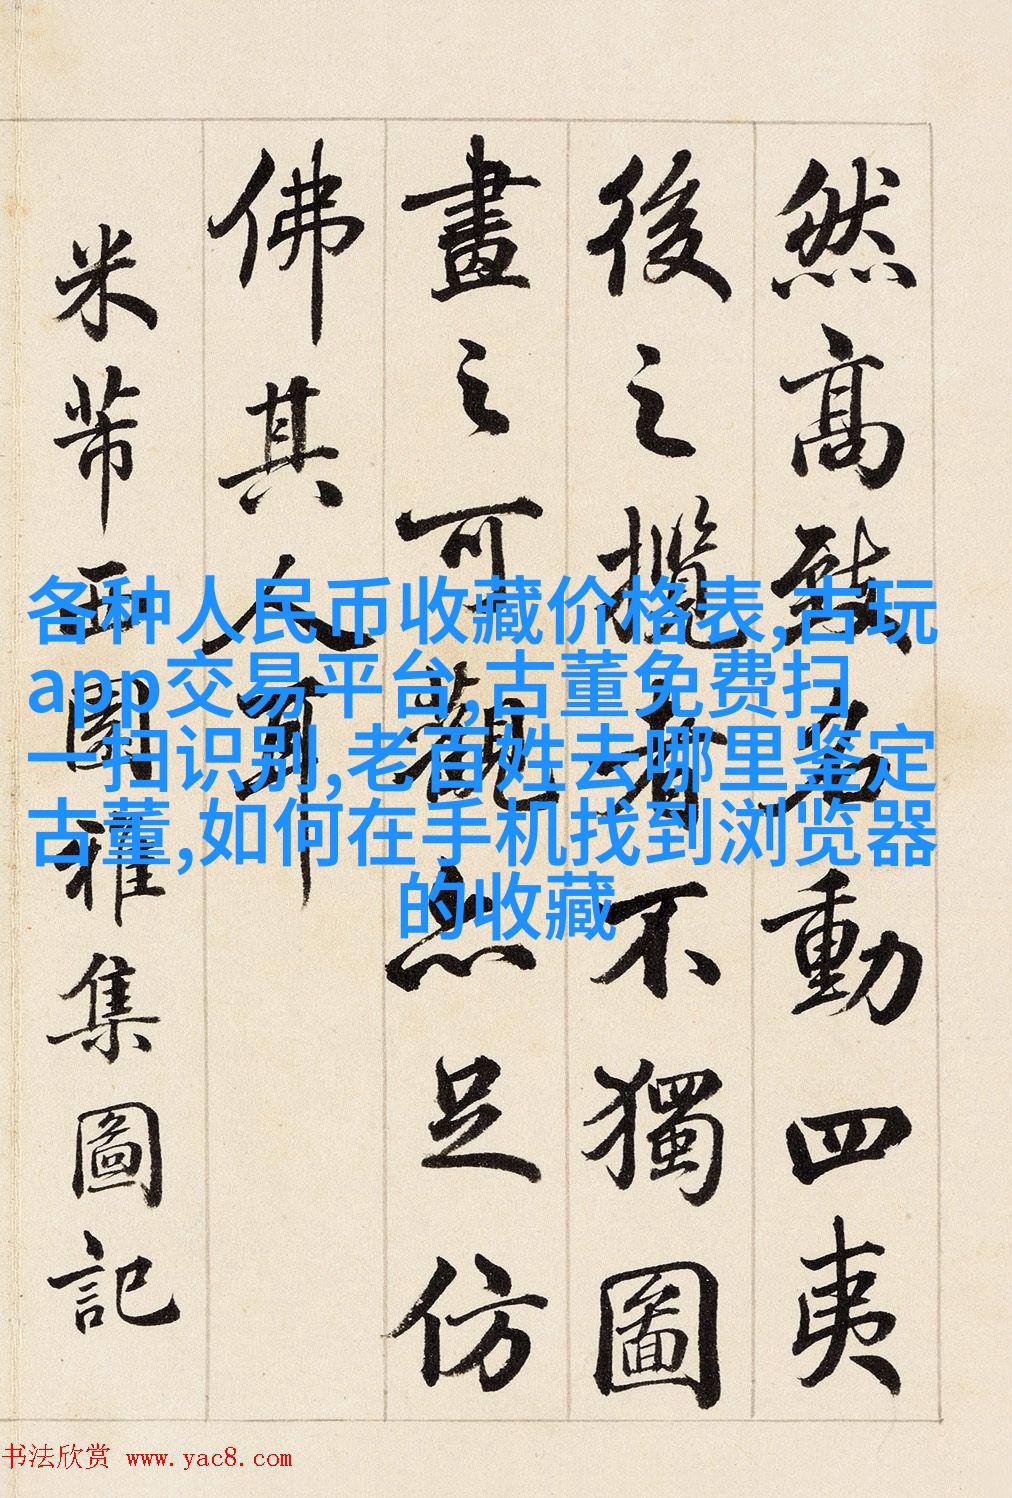 然高致名動四夷
後之攬者不獨圖
畫之可觀亦足仿
佛其人耳
米芾西園雅集圖記
各种人民币收藏价格表,古玩
app交易平台,古董免费扫
一扫识别,老百姓去哪里鉴定
古董,如何在手机找到浏览器
的收藏
书法欣赏 www.yac8.com